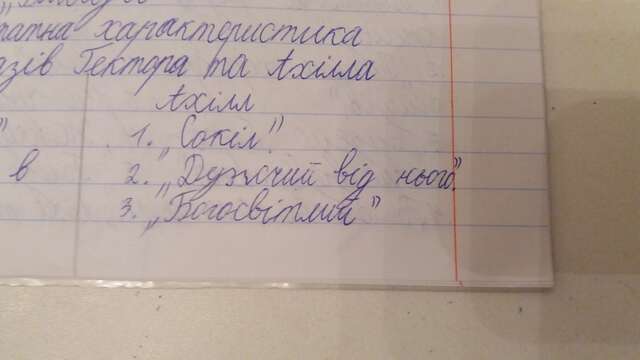 характеристика
Гектора та Ахілла
Ахілл
” 1. „Сокіл”
в 2. „Дужчий від нього”
3. „Богосвітлий”